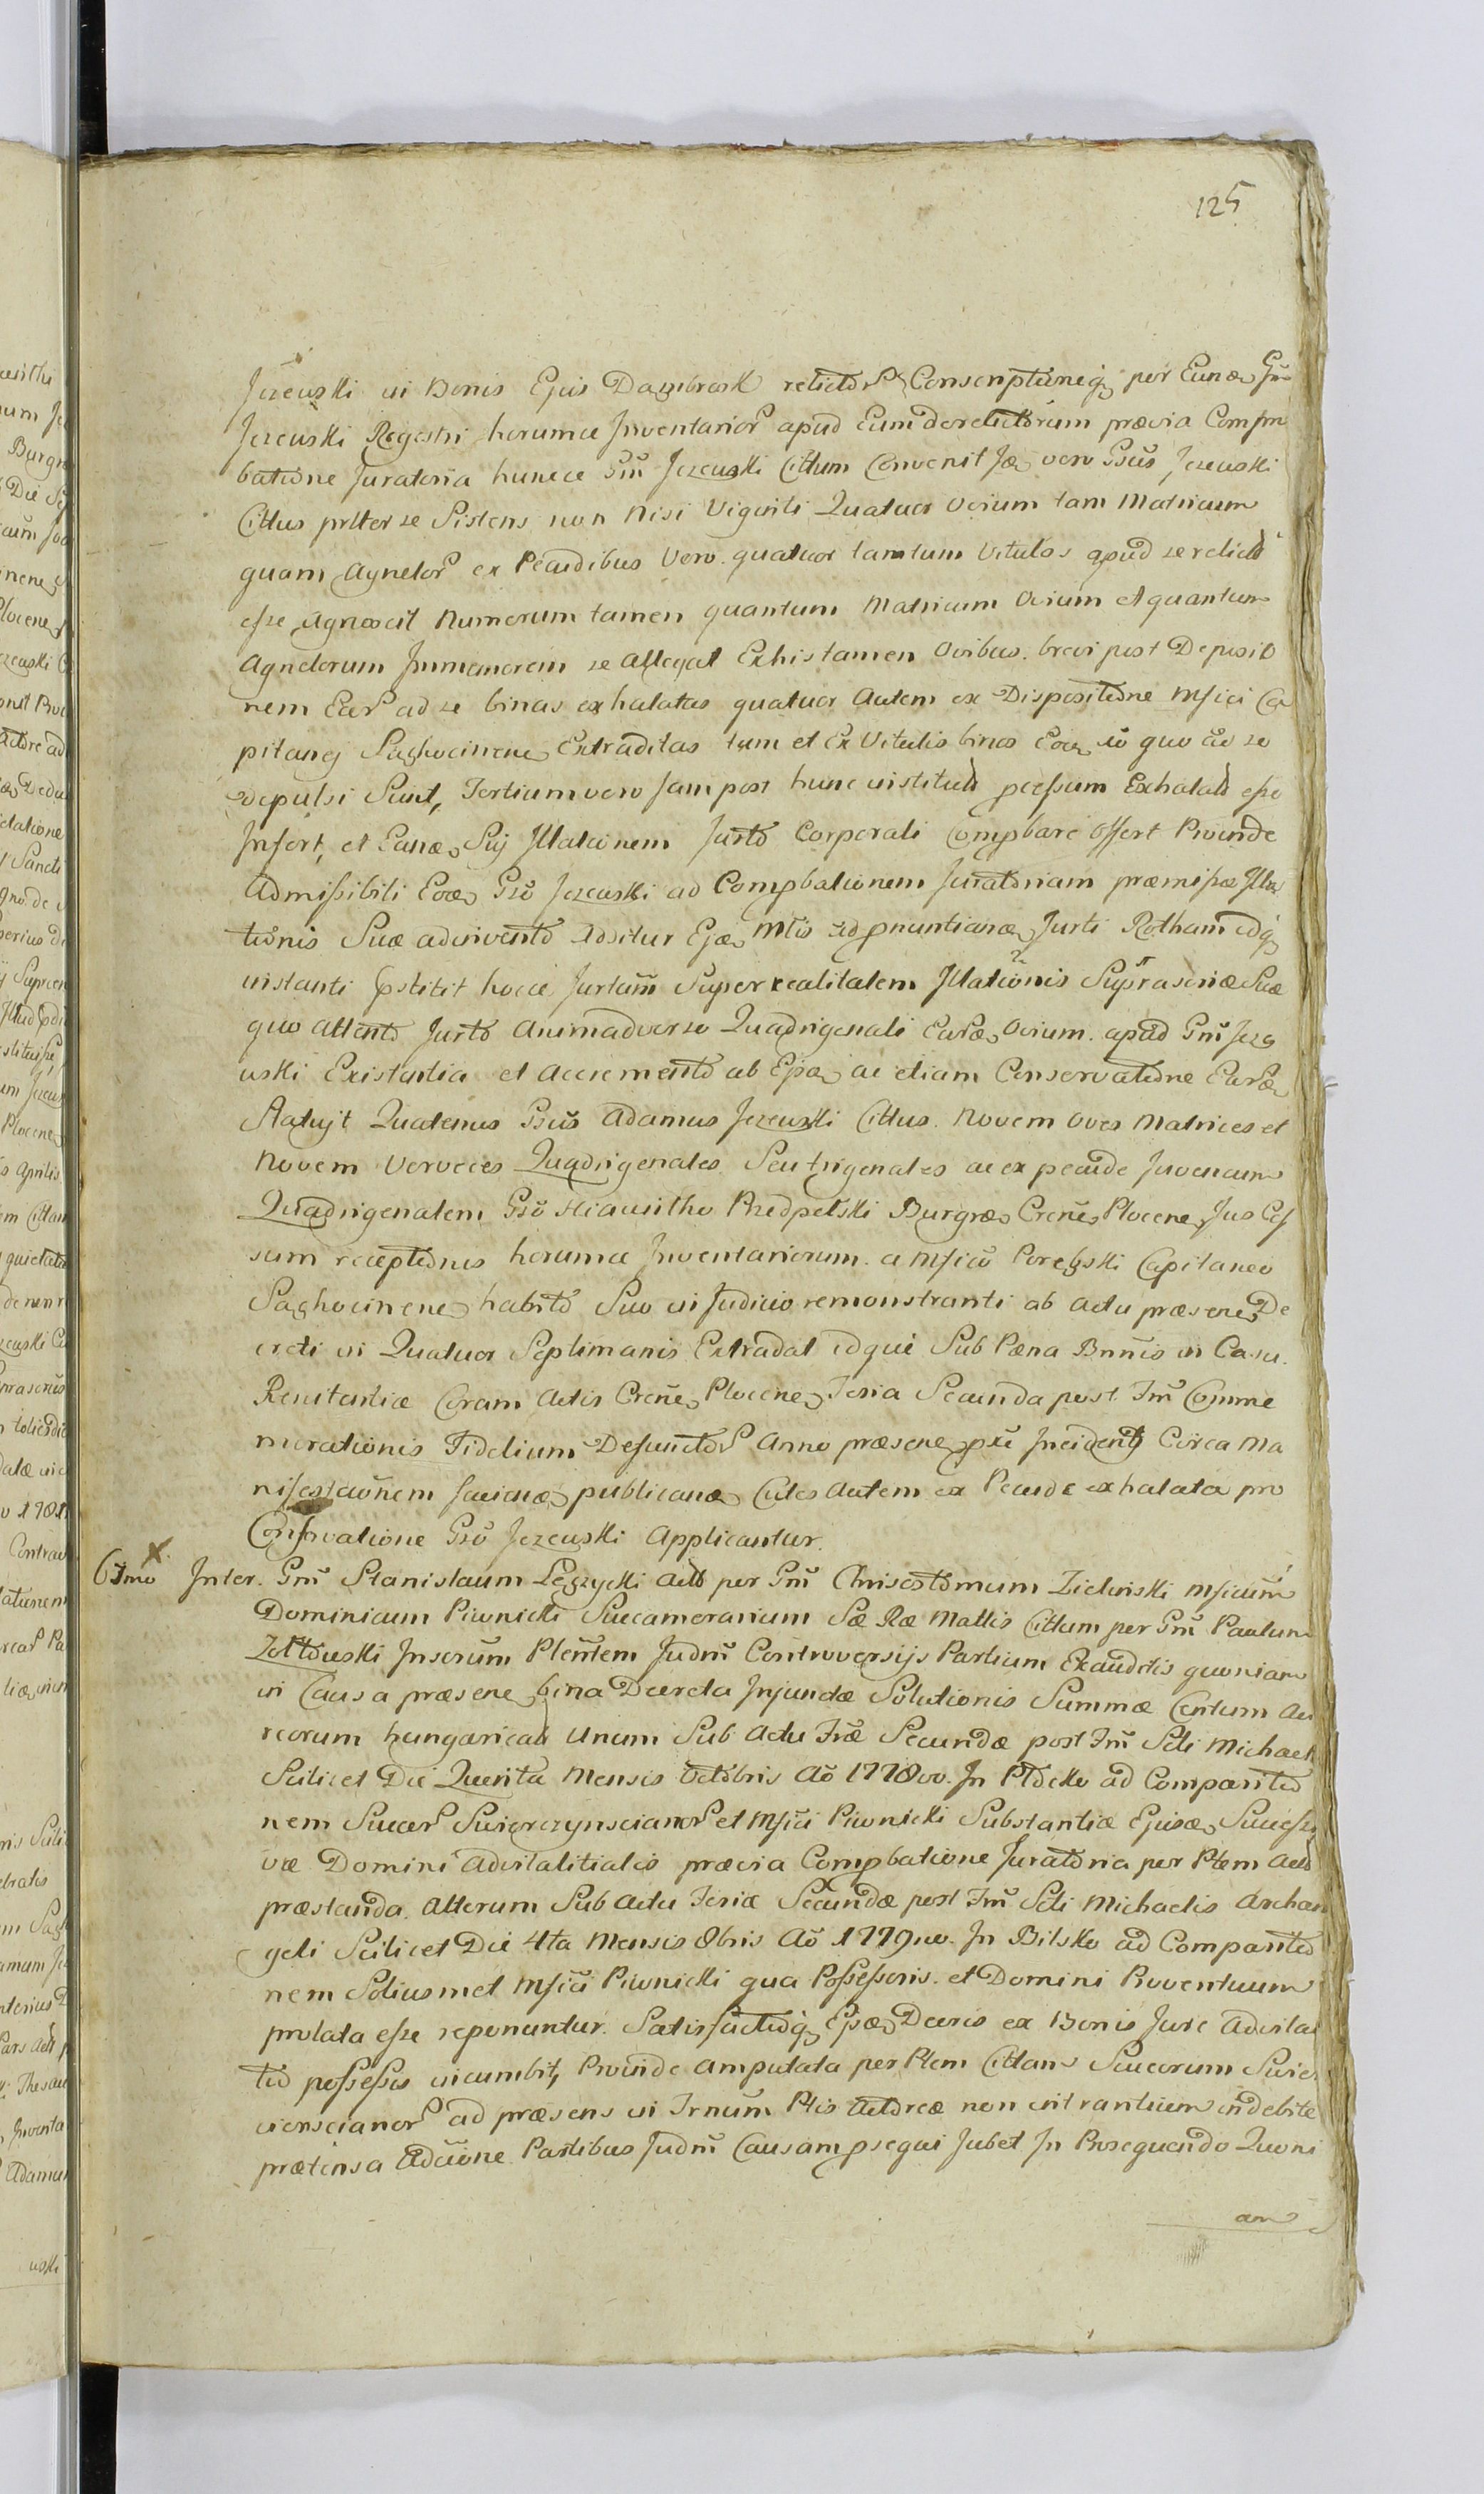 125
Jezewski in Bonis Ejus Dąmbrosk relictor Conscriptumq per Eund Gm
Jezewski Regestri horumce Inventarior apud Eum derelictorum prævia Compro
batione Juratoria hunce Gm Jezewski Cittum Convenit Jd vero Gsus Jezewski
Cittus prlter se Sistens non Nisi Viginti Quatuor Ovium tam Matricum
quam Agnelor ex Pecudibus Vero quatuor tantum Vitulos apud se relict
esse Agnoscit Numerum tamen quantum Matricum Ovium et quantum
Agnelorum Immemorem se Allegat Ex his tamen Ovibus brevi post Deposito
nem Ear ad se binas exhalatas quatuor Autem ex Dispositione Mfici Ca
pitanei Saghocinen Extraditas tum et Ex Vitulis binos Eod io quo ad se
depulsi Sunt, Tertium vero Jam post hunc institut pcessum Exhalat esse
Infert, et Eand Sui Illationem Jurto Corporali Compbare Offert Proinde
Admissibili Eod Gso Jezewski ad Compbationem Juratoriam præmissæ Illa
tionis Suæ adinvento Additur Ejd Mtis ad pnuntiand Jurti Rotham idq
instanti pstitit hocce Jurtum Super realitatem Illationis Suprascriæ Suæ
quo Attento Jurto Animadverso Quadrigenali Eard Ovium apud Gm Jeze
wski Existentia et Accremento ab Epd ac etiam Conservatione Eard
Statuit Quatenus Gsus Adamus Jezewski Cittus Novem Oves Matrices et
Novem Verveces Quadrigenales Seu trigenales ac ex pecude Juvencum
Quadrigenalem Gso Hiacintho Przedpełski Burgro Crene Plocene Jus Ces
sum receptionis horumce Inventariorum a Mfico Porębski Capitaneo
Saghocinen habito Suo in Judicio remonstranti ab actu præsene De
creti in Quatuor Septimanis Extradat idque Sub Pæna Bnnis in Casu
Renitentiæ Coram Actis Crene Plocene Feria Secunda post Fm Comme
morationis Fidelium Defunctor Anno præsene pxe Incidenti Circa Ma
nifestaonem faciend publicand Cutes Autem ex Pecude exhalata pro
Conservatione Gso Jezewski Applicantur.
X
61mo Inter Gm Stanislaum Łęzycki Act per Gm Chrisostomum Zielinski Mficum
Dominicum Piwnicki Succamerarium Sæ Ræ Mattis Cittum per Gm Paulum
Zołtowski Inserum Plentem Judm Controversijs Partium Exauditis quoniam
in Causa præsene bina Decreta Injunctæ Solutionis Summæ Centum Au
reorum hungarical Unum Sub Actu Fræ Secundæ post Fm Scti Michaelis
Scilicet Die Quinta Mensis Octobris Ao 1778vo. In Płocko ad Comparitio
nem Succer Swierczynscianor et Mfici Piwnicki Substantiæ Ejusd Success
væ Domini Advitalitialis prævia Compbatione Juratoria per Ptem Act
præstanda Alterum Sub Actu Feriæ Secundæ post Fm Scti Michaelis Archan
geli Scilicet Die 4ta Mensis 8bris Ao 1779no. In Bilsko ad Comparitio
nem Soliusmet Mfici Piwnicki qua Possessoris et Domini Proventuum
prolata esse reponuntur Satisfactioq Epd Decris ex Bonis Jure Advitali
tio possessis incumbit, Proinde Amputata per Ptem Cittam Succorum Swier
cienscianor ad præsens in Trnum Ptis Actoreæ non intrantium indebite
prætensa Adcitione Partibus Judm Causam psequi Jubet In Prosequendo Quoni
am